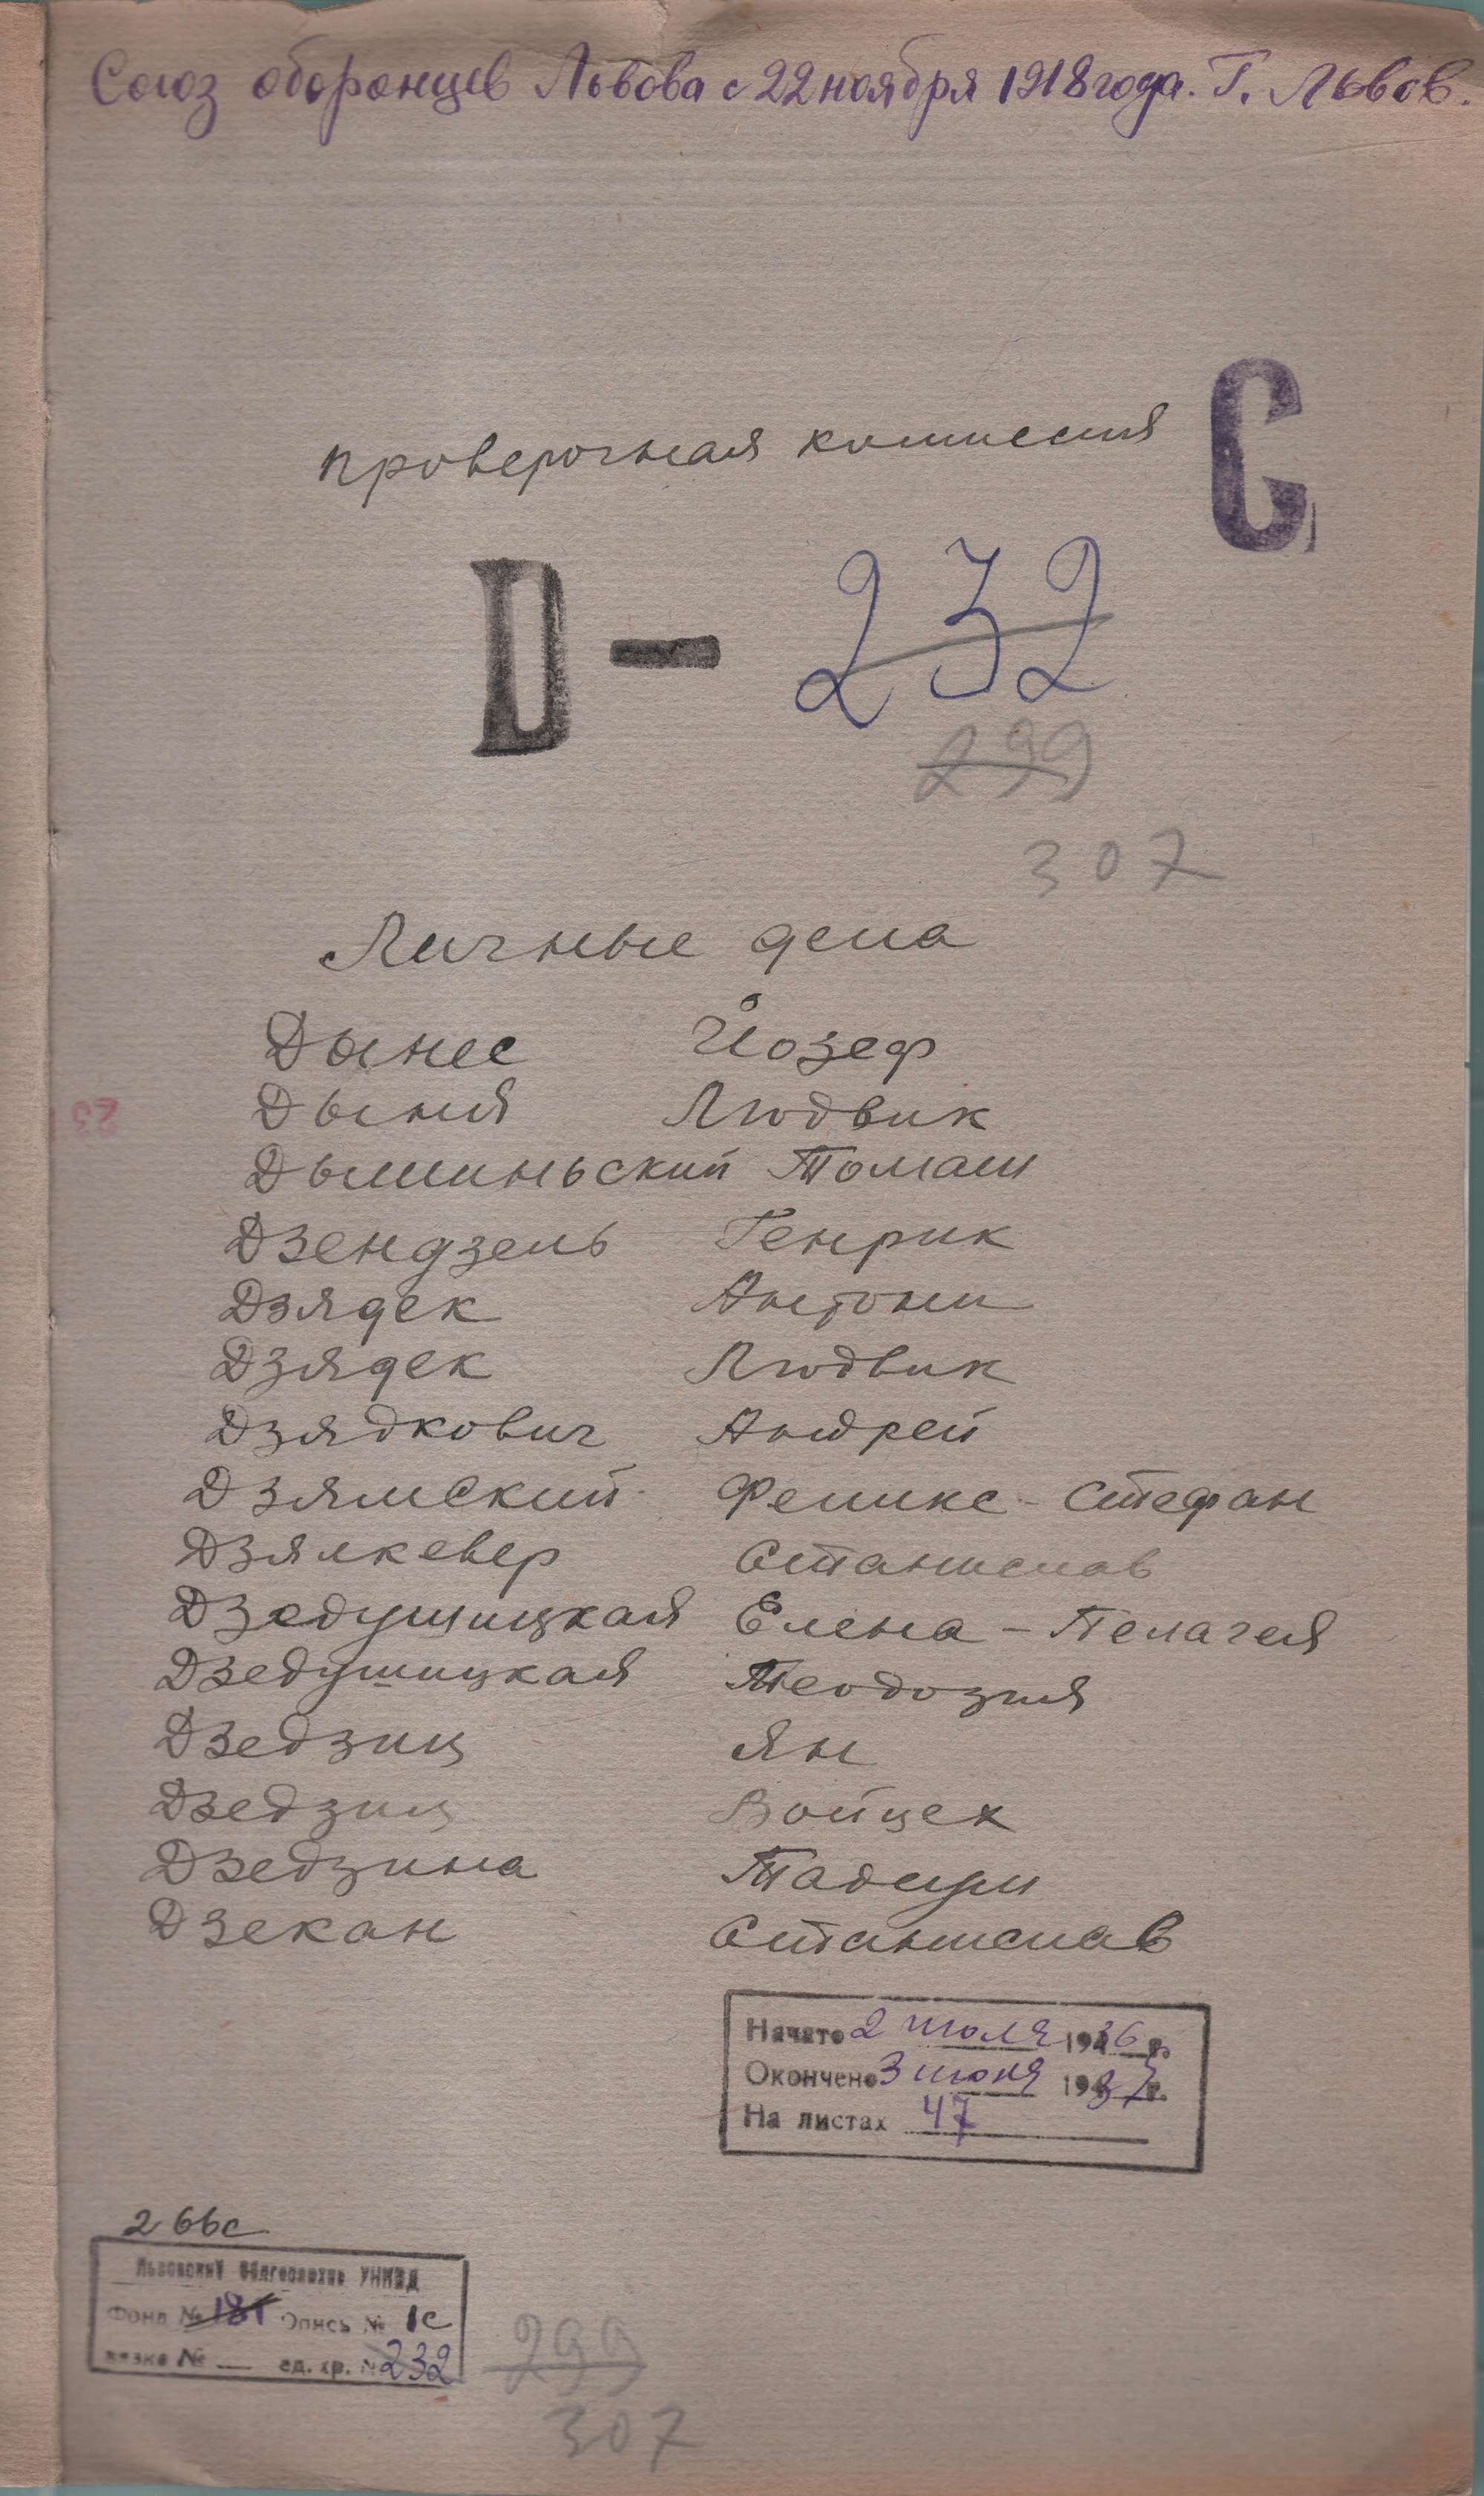 Союз оборонцев Львова с 22 ноября 1918 года. Г. Львов.
С
проверочная комиссия
D — 232
299
307
Личные дела
Дынес Йозеф
Дыня Людвик
Дыминьский Томаш
Дзендзель Генрик
Дзядек Антони
Дзядек Людвик
Дзядкович Андрей
Дзямский Феликс - Стефан
Дзялкевер Станислав
Дзедушицкая Елена - Пелагея
Дзедушицкая Теодозия
Дзедзиц Ян
Дзедзиц Войцех
Дзедзина Тадеуш
Дзекан Станислав
Начато 2 июля 1936 г.
Окончено 3 июня 1937 г.
На листах 47
266с
Львовский Облгосархив УНКВД
Фонд № 181 Опись № 1с
вязка № — ед. хр. № 232
299
307